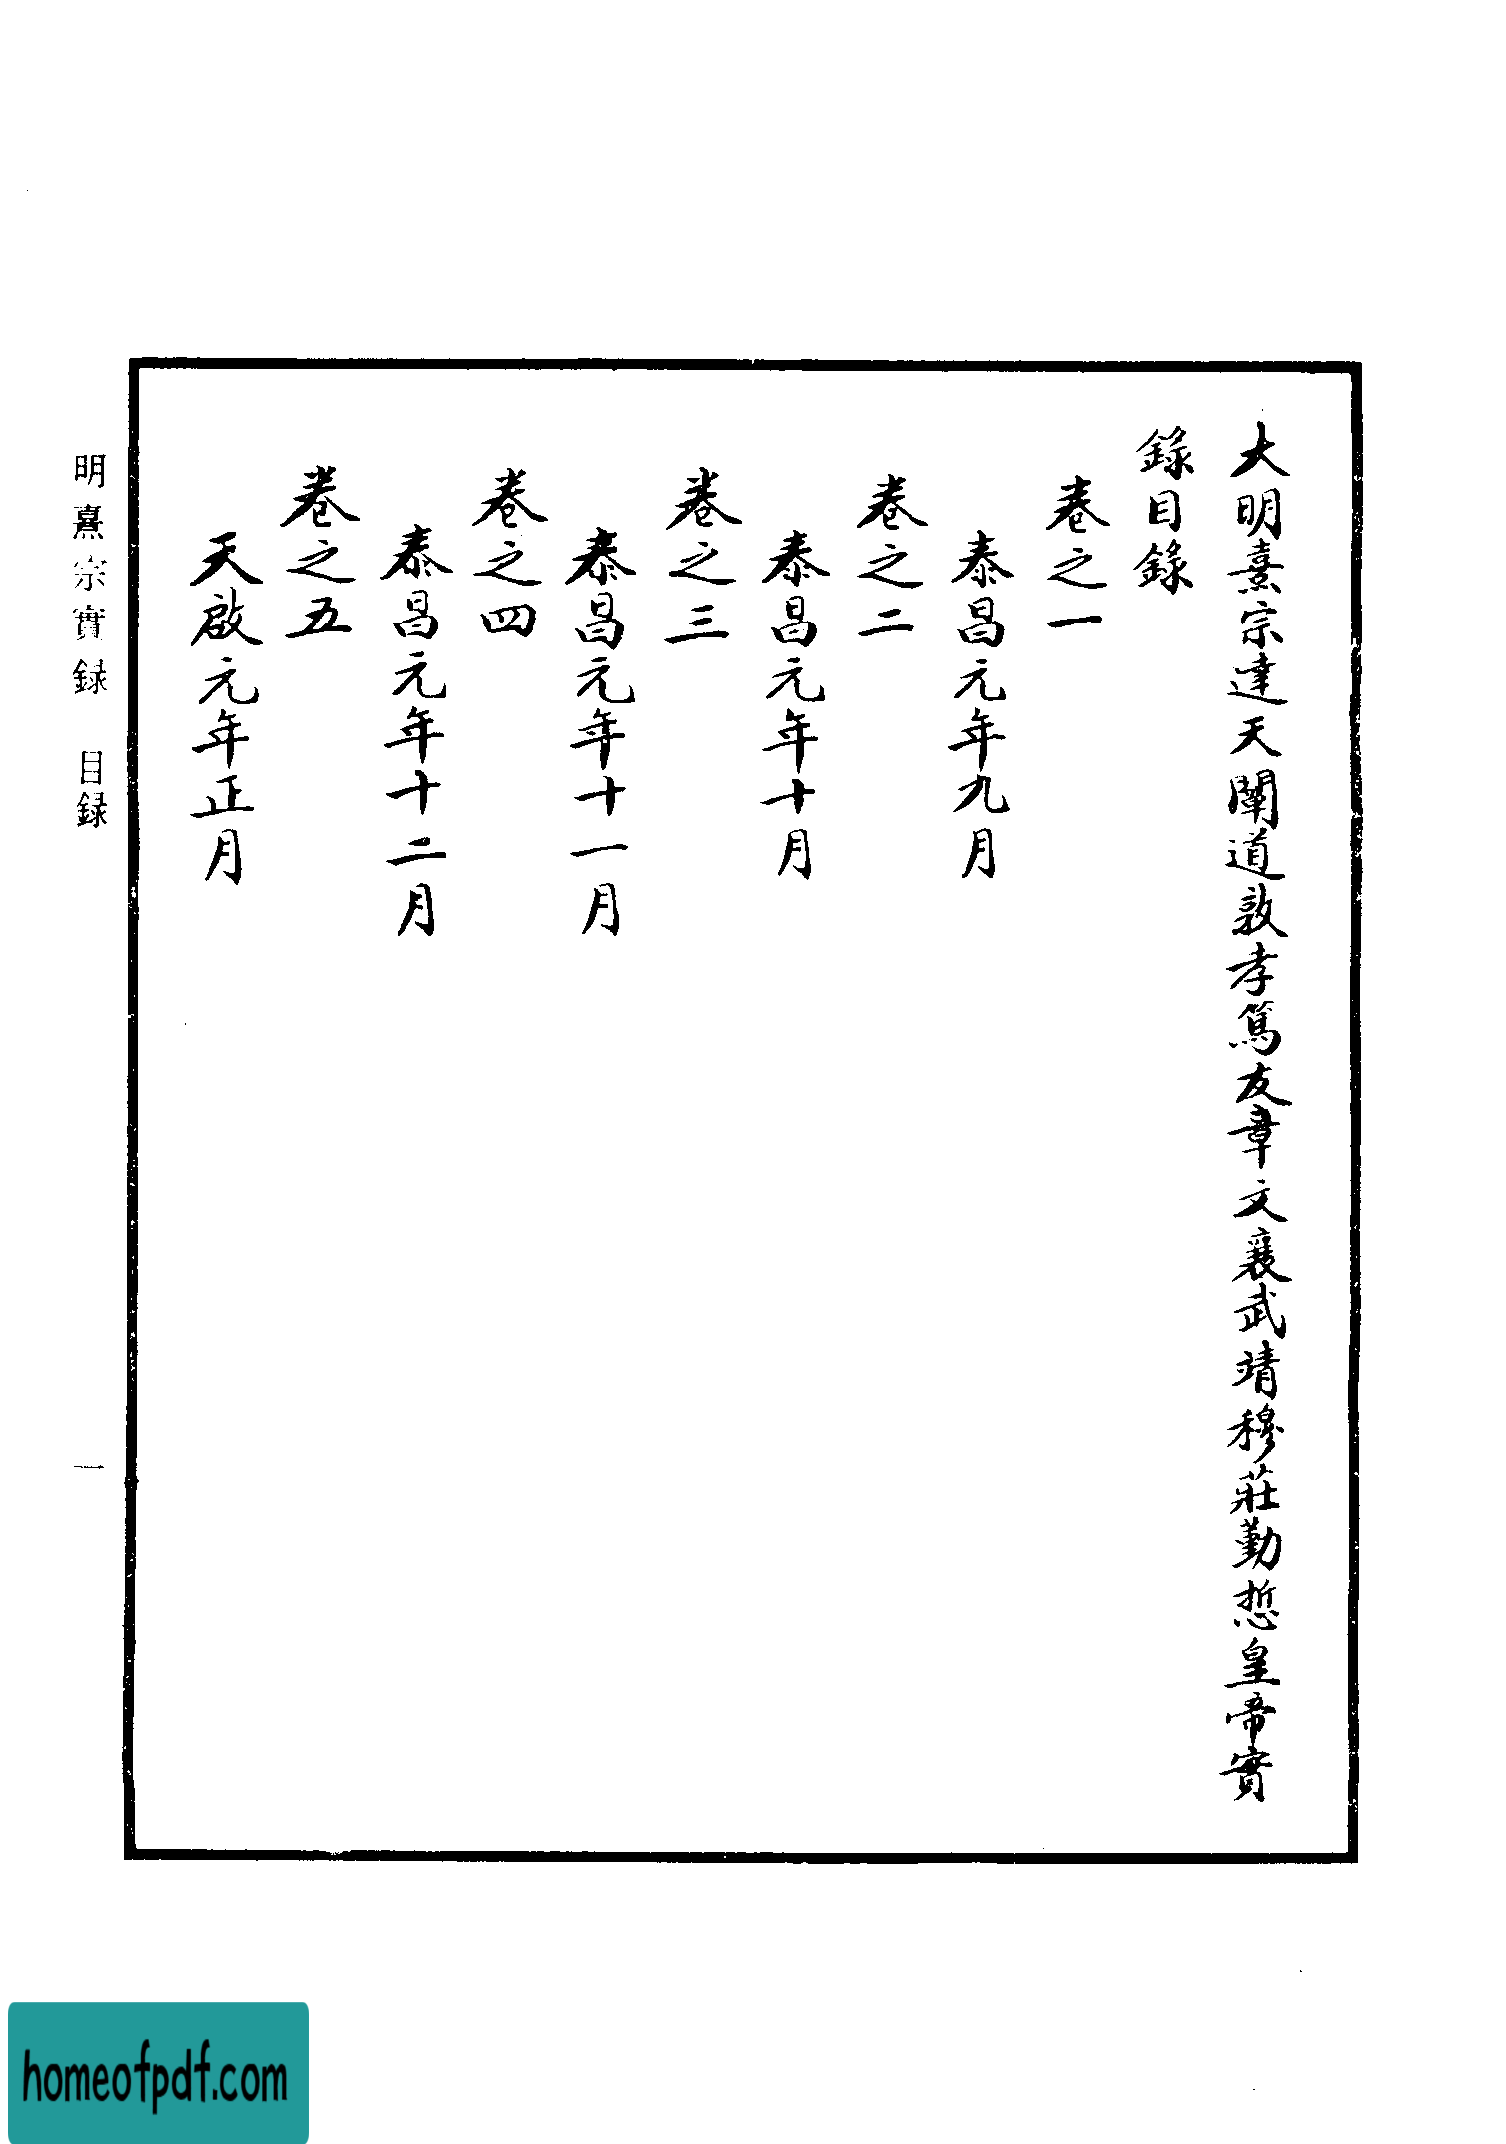 大明熹宗達天闡道敦孝篤友章文襄武靖穆莊勤悊皇帝實
錄目錄
卷之一
泰昌元年九月
卷之二
泰昌元年十月
卷之三
泰昌元年十一月
卷之四
泰昌元年十二月
卷之五
天啟元年正月
明熹宗實録 目録 一
homeofpdf.com